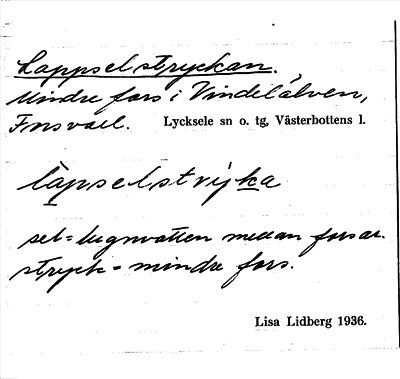 Lappselstryckan.
Mindre fors i Vindelälven,
Lycksele sn o. tg, Västerbottens l.
làpselstrỳka
sel = lugnvatten mellan forsar.
stryck = mindre fors.
Lisa Lidberg 1936.